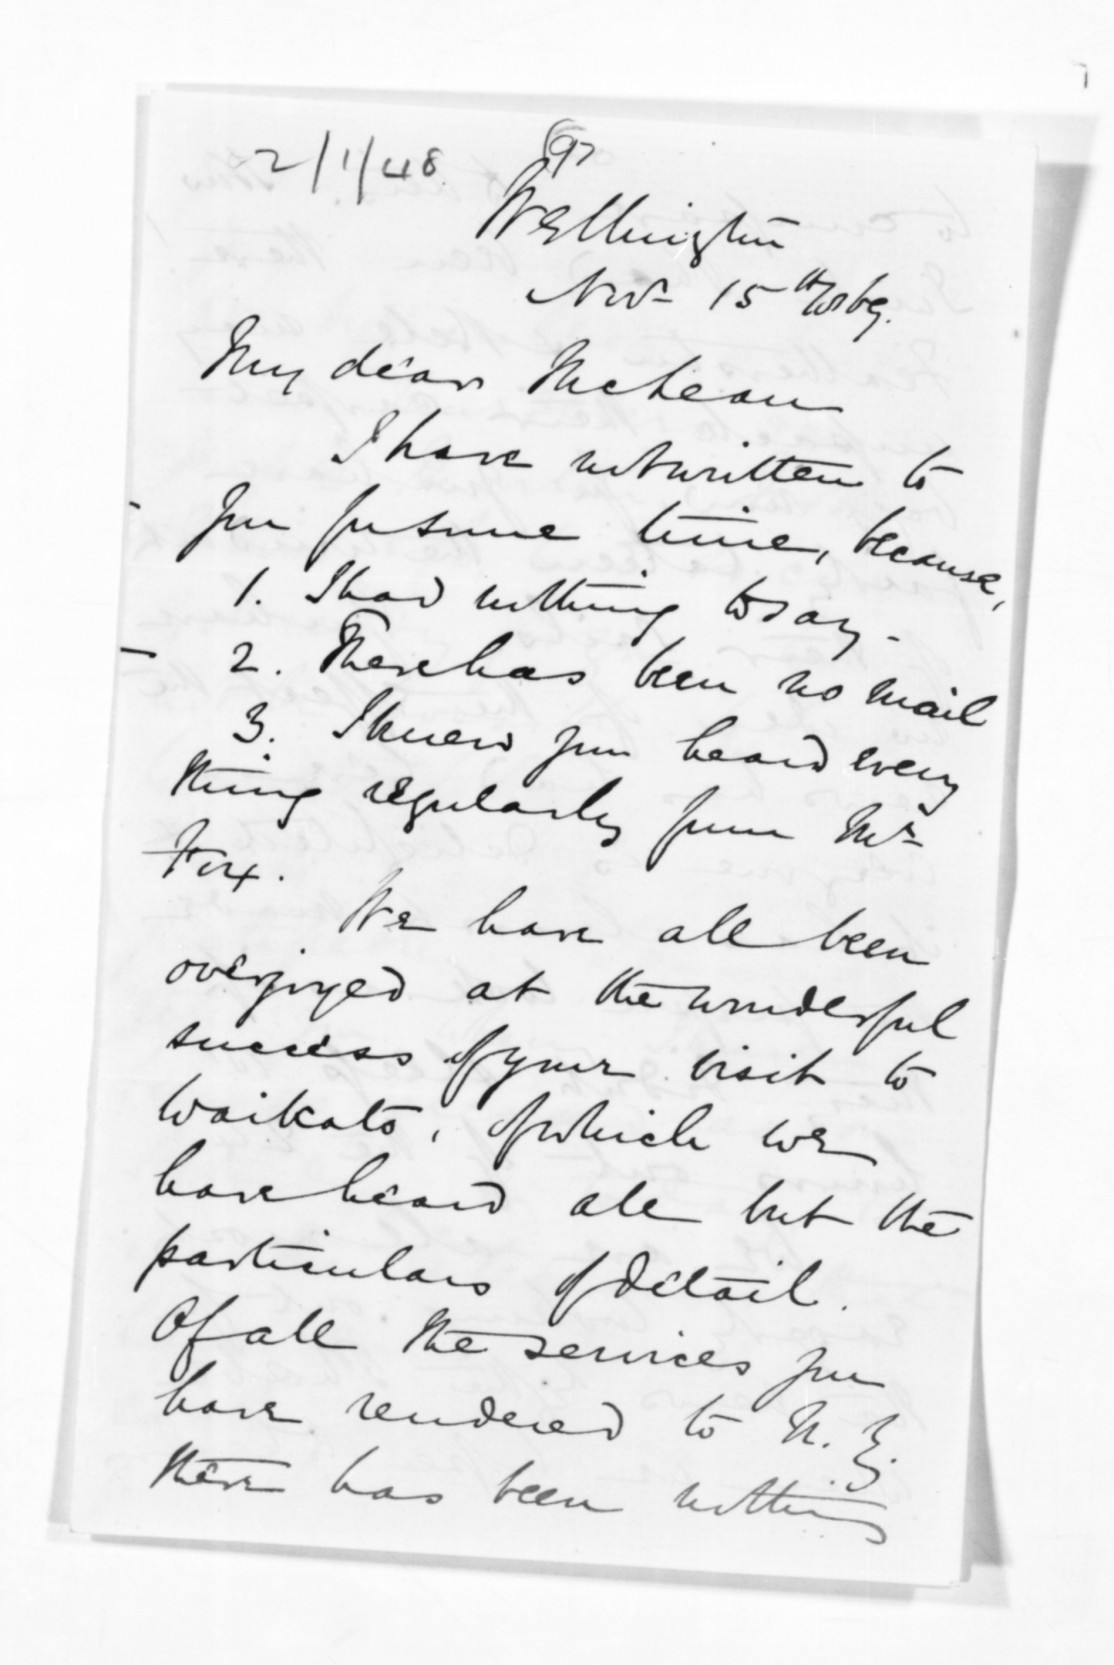 2/1/48
Wellington
Nov 15th 1869.
My dear McLean
I have not written to
you for some time, because,
1. I had nothing to say.
2. There has been no mail
3. I knew you heard every
thing regularly from Mr
Fox.
We have all been
overjoyed at the wonderful
success of your visit to
Waikato, of which we
have heard all but the
particulars of detail.
Of all the services you
have rendered to N. Z.
there has been nothing